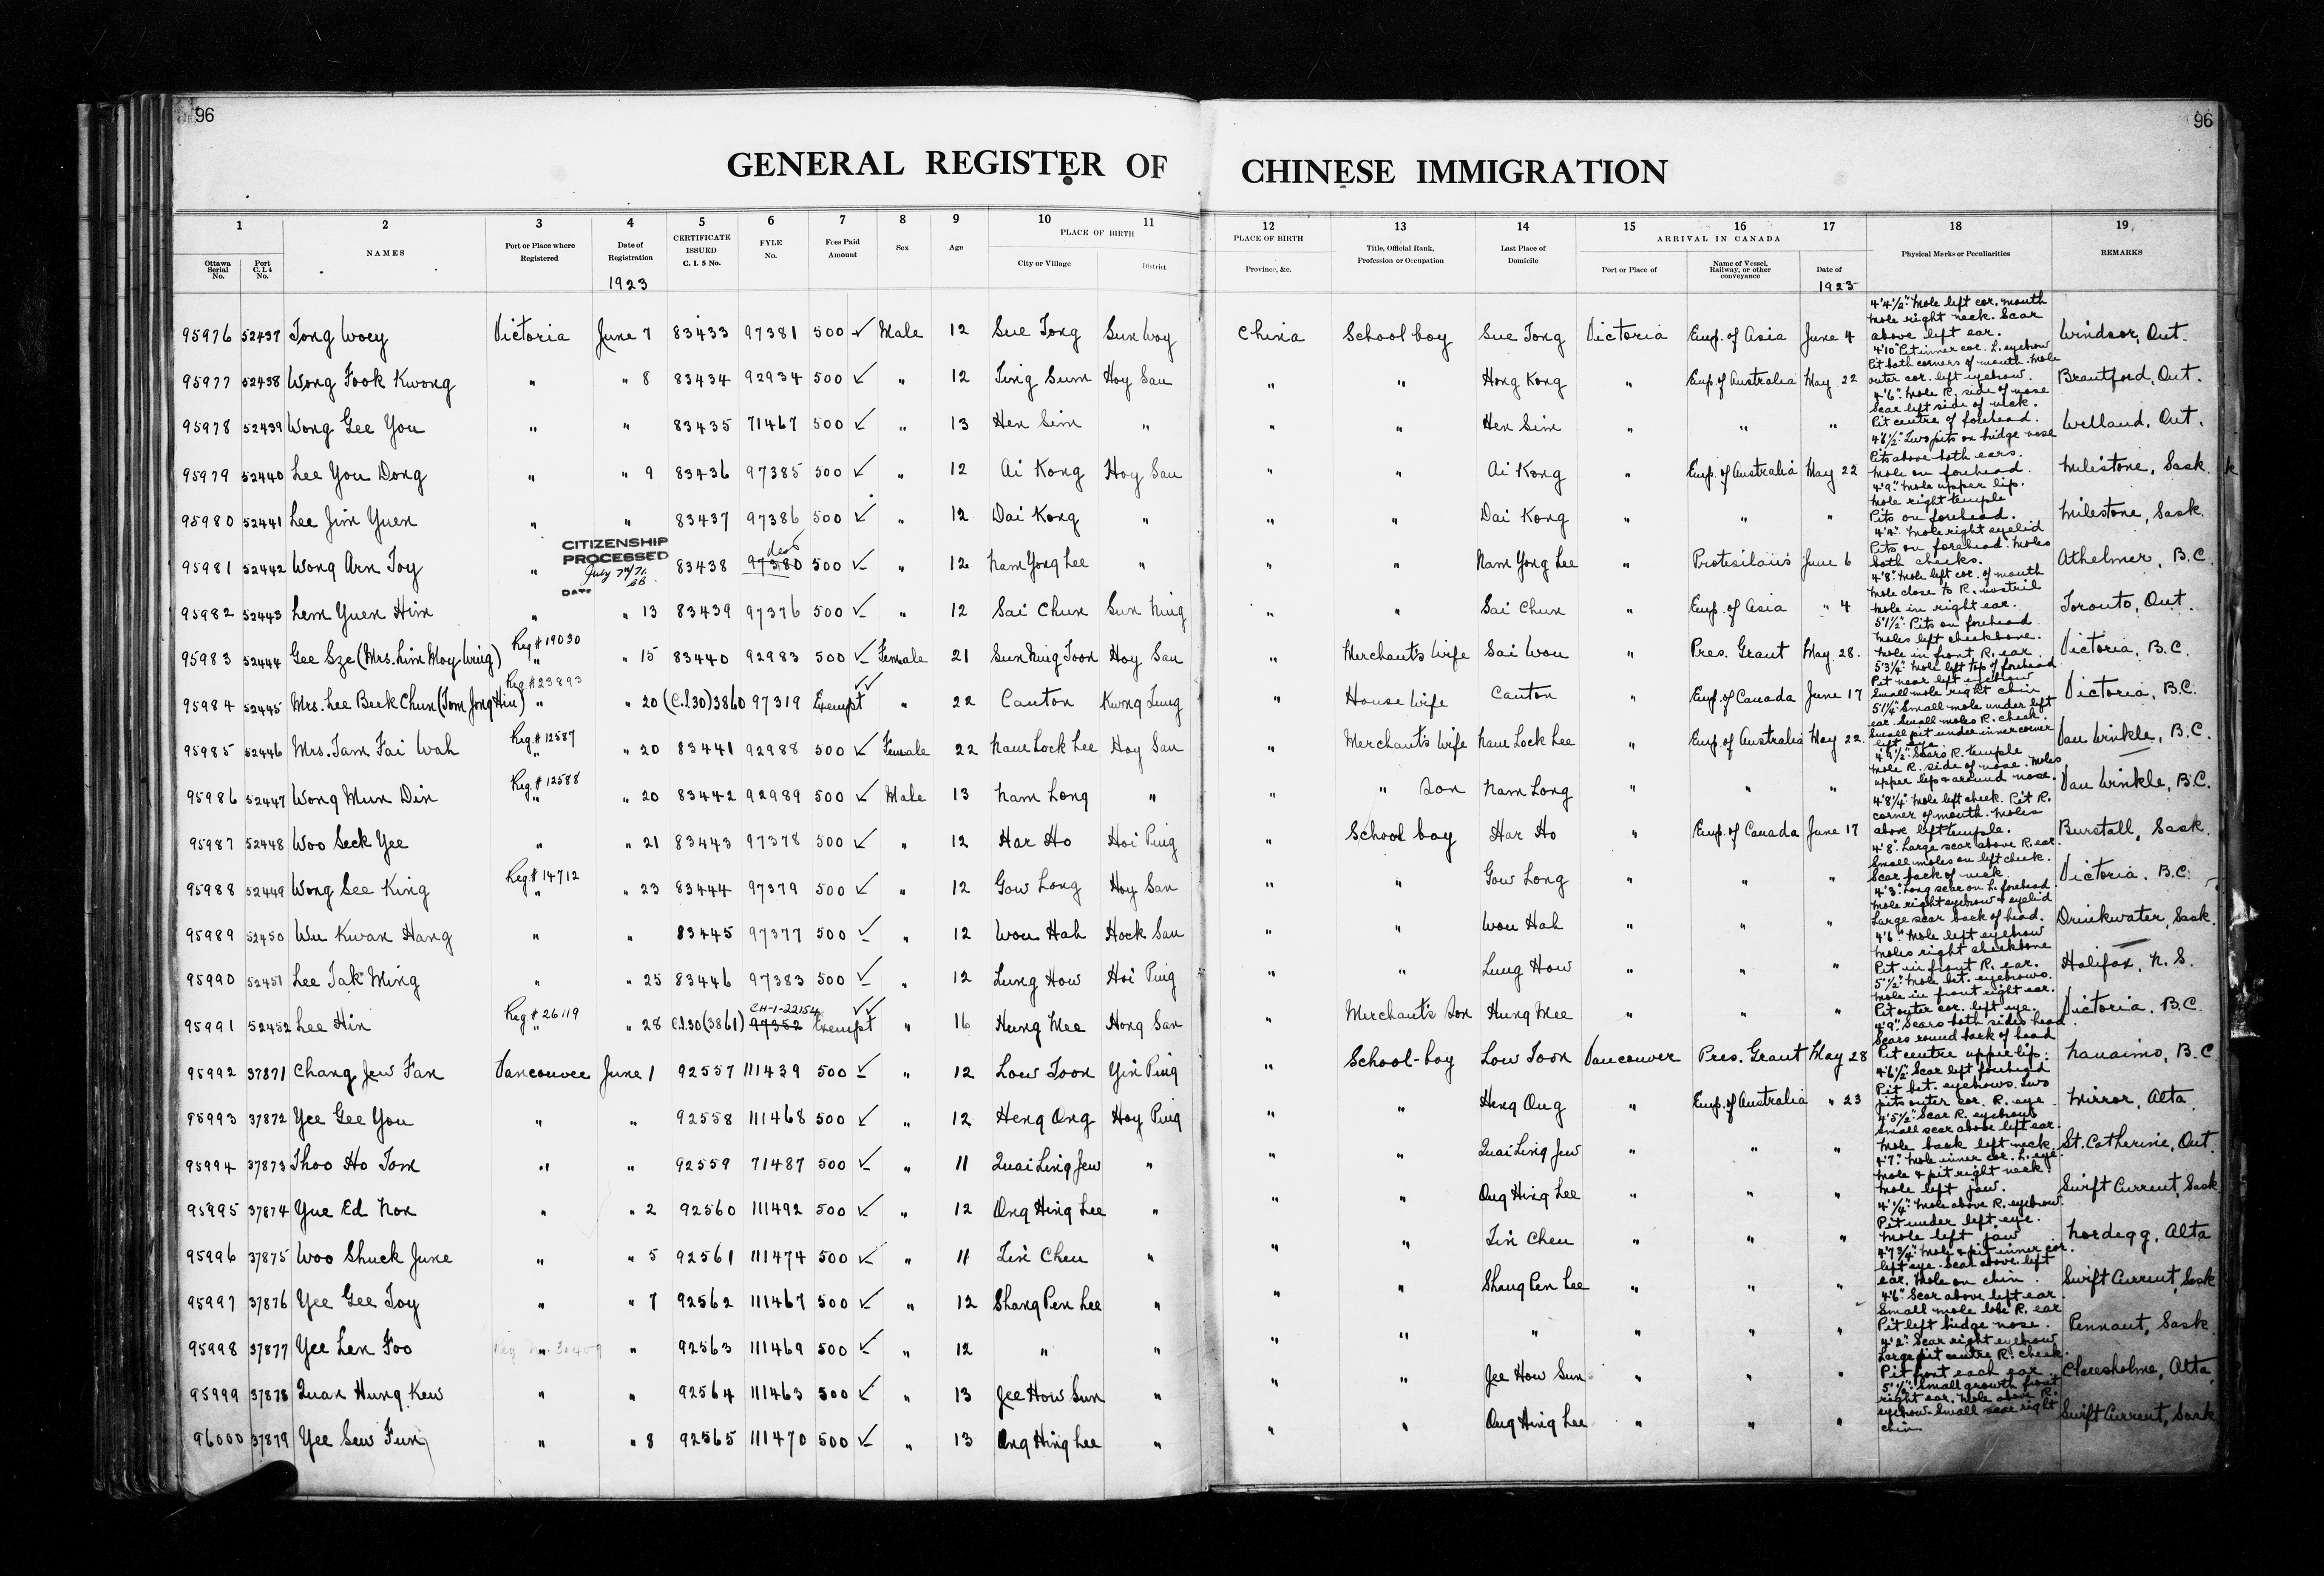 96
96
GENERAL REGISTER OF CHINESE IMMIGRATION
1 2 3 4 5 6 7 8 9 10 11 12 13 14 15 16 17 18 19
Ottawa Serial No. Port C.I.4 No. NAMES Port or Place where Registered Date of Registration CERTIFICATE ISSUED C. I. 5 No. FYLE No. Fees Paid Amount Sex Age PLACE OF BIRTH City or Village District PLACE OF BIRTH Province, &c. Title, Official Rank, Profession or Occupation Last Place of Domicile ARRIVAL IN CANADA Port or Place of Name of Vessel, Railway, or other conveyance Date of Physical Marks or Peculiarities REMARKS
1923 1923
95976 52437 Tong Woey Victoria June 7 83433 97381 500 ✓ Male 12 Sue Tong Sun Woy China School boy Sue Tong Victoria Emp. of Asia June 4 4'4½" Mole left cor. mouth Mole right neck. Scar above left ear. Windsor, Ont.
95977 52438 Wong Fook Kwong " " 8 83434 92934 500 ✓ " 12 Ting Sum Hoy San " " Hong Kong " Emp. of Australia May 22 4'10" Pit inner cor. L. eyebrow Pit both corners of mouth. Mole outer cor. left eyebrow. Brantford, Ont.
95978 52439 Wong Gee You " " 83435 71467 500 ✓ " 13 Hen Sim " " " Hen Sim " " " 4'6" Mole R. side of nose Scar left side of neck. Pit centre of forehead. Welland, Ont.
95979 52440 Lee You Dong " " 9 83436 97385 500 ✓ " 12 Ai Kong Hoy San " " Ai Kong " Emp. of Australia May 22 4'6½" Two pits on bridge nose Pits above both ears. Mole on forehead. Milestone, Sask.
95980 52441 Lee Jim Yuen " " 83437 97386 500 ✓ " 12 Dai Kong " " " Dai Kong " " " 4'9" Mole upper lip. Mole right temple Pits on forehead. Milestone, Sask.
CITIZENSHIP PROCESSED July 7th/71 DATE
95981 52442 Wong Arn Toy " 83438 97380 500 ✓ " 12 Nam Yong Lee " " " Nam Yong Lee " Protesilaus June 6 4'4" Mole right eyelid Pits on forehead. Moles both cheeks. Athelmer, B.C.
95982 52443 Lem Yuen Him " " 13 83439 97376 500 ✓ " 12 Sai Chun Sun Ning " " Sai Chun " Emp. of Asia " 4 4'8" Mole left cor. of mouth Mole close to R. nostril Mole in right ear. Toronto, Ont.
95983 52444 Gee Sze (Mrs. Lim Moy Wing) Reg # 19030 " " 15 83440 92983 500 ✓ Female 21 Sun Ning Toon Hoy San " Merchant's Wife Sai Wou " Pres. Grant May 28. 5'1½" Pits on forehead Moles left cheekbone. Mole in front R. ear. Victoria, B.C.
95984 52445 Mrs. Lee Beck Chun (Tom Jong Hin) Reg # 23893 " " 20 (C.I.30) 3860 97319 Exempt ✓✓ " 22 Canton Kwong Tung " House Wife Canton " Emp. of Canada June 17 5'3¼" Mole left top of forehead Pit near left eyebrow Small mole right chin Victoria, B.C.
95985 52446 Mrs. Tam Fai Wah Reg. # 12587 " " 20 83441 92988 500 ✓ Female 22 Nam Lock Lee Hoy San " Merchant's Wife Nam Lock Lee " Emp. of Australia May 22. 5'1¼" Small mole under left ear. Small moles R. cheek. Small pit under inner corner left eye. Van Winkle, B.C.
95986 52447 Wong Mun Din Reg. # 12588 " " 20 83442 92989 500 ✓ Male 13 Nam Long " " " Son Nam Long " " " 4'9½" Scars R. temple Mole R. side of nose. Moles upper lip & around nose. Van Winkle, B.C.
95987 52448 Woo Seck Yee " " 21 83443 97378 500 ✓ " 12 Har Ho Hoi Ping " School boy Har Ho " Emp. of Canada June 17 4'8¼" Mole left cheek. Pit R. corner of mouth. Moles above left temple. Burstall, Sask.
95988 52449 Wong See King Reg. # 14712 " " 23 83444 97379 500 ✓ " 12 Gow Long Hoy San " " Gow Long " " " 4'8" Large scar above R. ear. Small moles on left cheek. Scar back of neck. Victoria, B.C.
95989 52450 Wu Kwan Hang " " 83445 97377 500 ✓ " 12 Wou Hah Hock San " " Wou Hah " " " 4'3" Long scar on L. forehead Mole right eyebrow & eyelid Large scar back of head. Drinkwater, Sask.
95990 52451 Lee Tak Ming " " 25 83446 97383 500 ✓ " 12 Lung How Hoi Ping " " Lung How " " " 4'6" Mole left eyebrow Moles right cheekbone Pit in front R. ear. Halifax, N.S.
95991 52452 Lee Hin Reg # 26119 " " 28 C.I.30 (3861) CH-1-22154 97352 Exempt ✓✓ " 16 Hung Mee Hong San " Merchant's Son Hung Mee " " " 5'½" Mole bet. eyebrows. Mole in front right ear. Pit outer cor. left eye. Victoria, B.C.
95992 37871 Chang Jew Fan Vancouver June 1 92557 111439 500 ✓ " 12 Low Toon Yin Ping " School-boy Low Toon Vancouver Pres. Grant May 28 4'9" Scars both sides head Scars round back of head Pit centre upper lip. Nanaimo, B.C.
95993 37872 Yee Gee You " " 92558 111468 500 ✓ " 12 Heng Ong Hoy Ping " " Heng Ong " Emp. of Australia " 23 4'6½" Scar left forehead Pit bet. eyebrows. Two pits outer cor. R. eye. Mirror, Alta.
95994 37873 Thoo Ho Tom " " 92559 71487 500 ✓ " 11 Quai Ling Jew " " " Quai Ling Jew " " " 4'5½" Scar R. eyebrow Small scar above left ear. Mole back left neck. St. Catherine, Ont.
95995 37874 Yue Ed Non " " 2 92560 111492 500 ✓ " 12 Ong Hing Lee " " " Ong Hing Lee " " " 4'7" Mole inner cor. L. eye. Mole & pit right neck. Mole left jaw. Swift Current, Sask.
95996 37875 Woo Shuck June " " 5 92561 111474 500 ✓ " 11 Lin Chen " " " Lin Chen " " " 4'¼" Mole above R. eyebrow. Pit under left eye. Mole left jaw. Nordegg, Alta
95997 37876 Yee Gee Toy " " 7 92562 111467 500 ✓ " 12 Shang Pen Lee " " " Shang Pen Lee " " " 4'7¾" Mole & pit inner cor. left eye. Scar above left ear. Mole on chin. Swift Current, Sask
95998 37877 Yee Len Foo " " 92563 111469 500 ✓ " 12 " " " " " " " " 4'6" Scar above left ear. Small mole lobe R. ear Pit left bridge nose. Pennant, Sask.
95999 37878 Quan Hung Kew " " 92564 111463 500 ✓ " 13 Jee How Sun " " " Jee How Sun " " " 4'2" Scar right eyebrow Large pit centre R. cheek. Pit front each ear. Claresholme, Alta
96000 37879 Yee Sew Fun " " 8 92565 111470 500 ✓ " 13 Ong Hing Lee " " " Ong Hing Lee " " " 5'½" Small growth front right ear. Mole above R. eyebrow. Small scar right chin. Swift Current, Sask